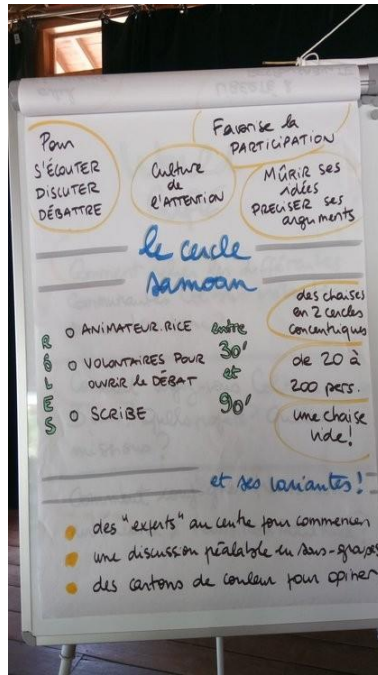 Pour
S'ÉCOUTER
DISCUTER
DÉBATTRE
Culture
de
l'ATTENTION
Favorise la
PARTICIPATION
MÛRIR SES
idées
PRECISER SES
arguments
le cercle
samoan
RÔLES
o ANIMATEUR.RICE
o VOLONTAIRES POUR
OUVRIR le DÉBAT
o SCRIBE
entre
30'
et
90'
des chaises
en 2 cercles
concentriques
de 20 à
200 pers.
une chaise
vide!
et ses variantes!
des "experts" au centre pour commencer
une discussion préalable en sous-groupes
des cartons de couleur pour opiner